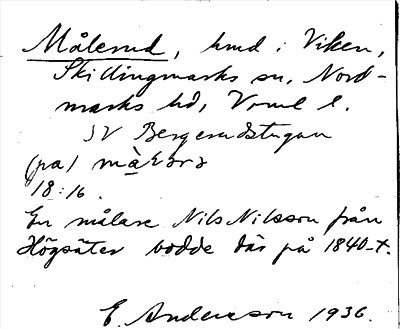 Målerud, hmd i Viken,
Skillingmarks sn, Nord-
marks hd, Vrml l.
SV Bergerudstugan
(pa) mà
18:16
En målare Nils Nilsson från
Högsäter bodde där på 1840-t.
E. Andersson 1936.